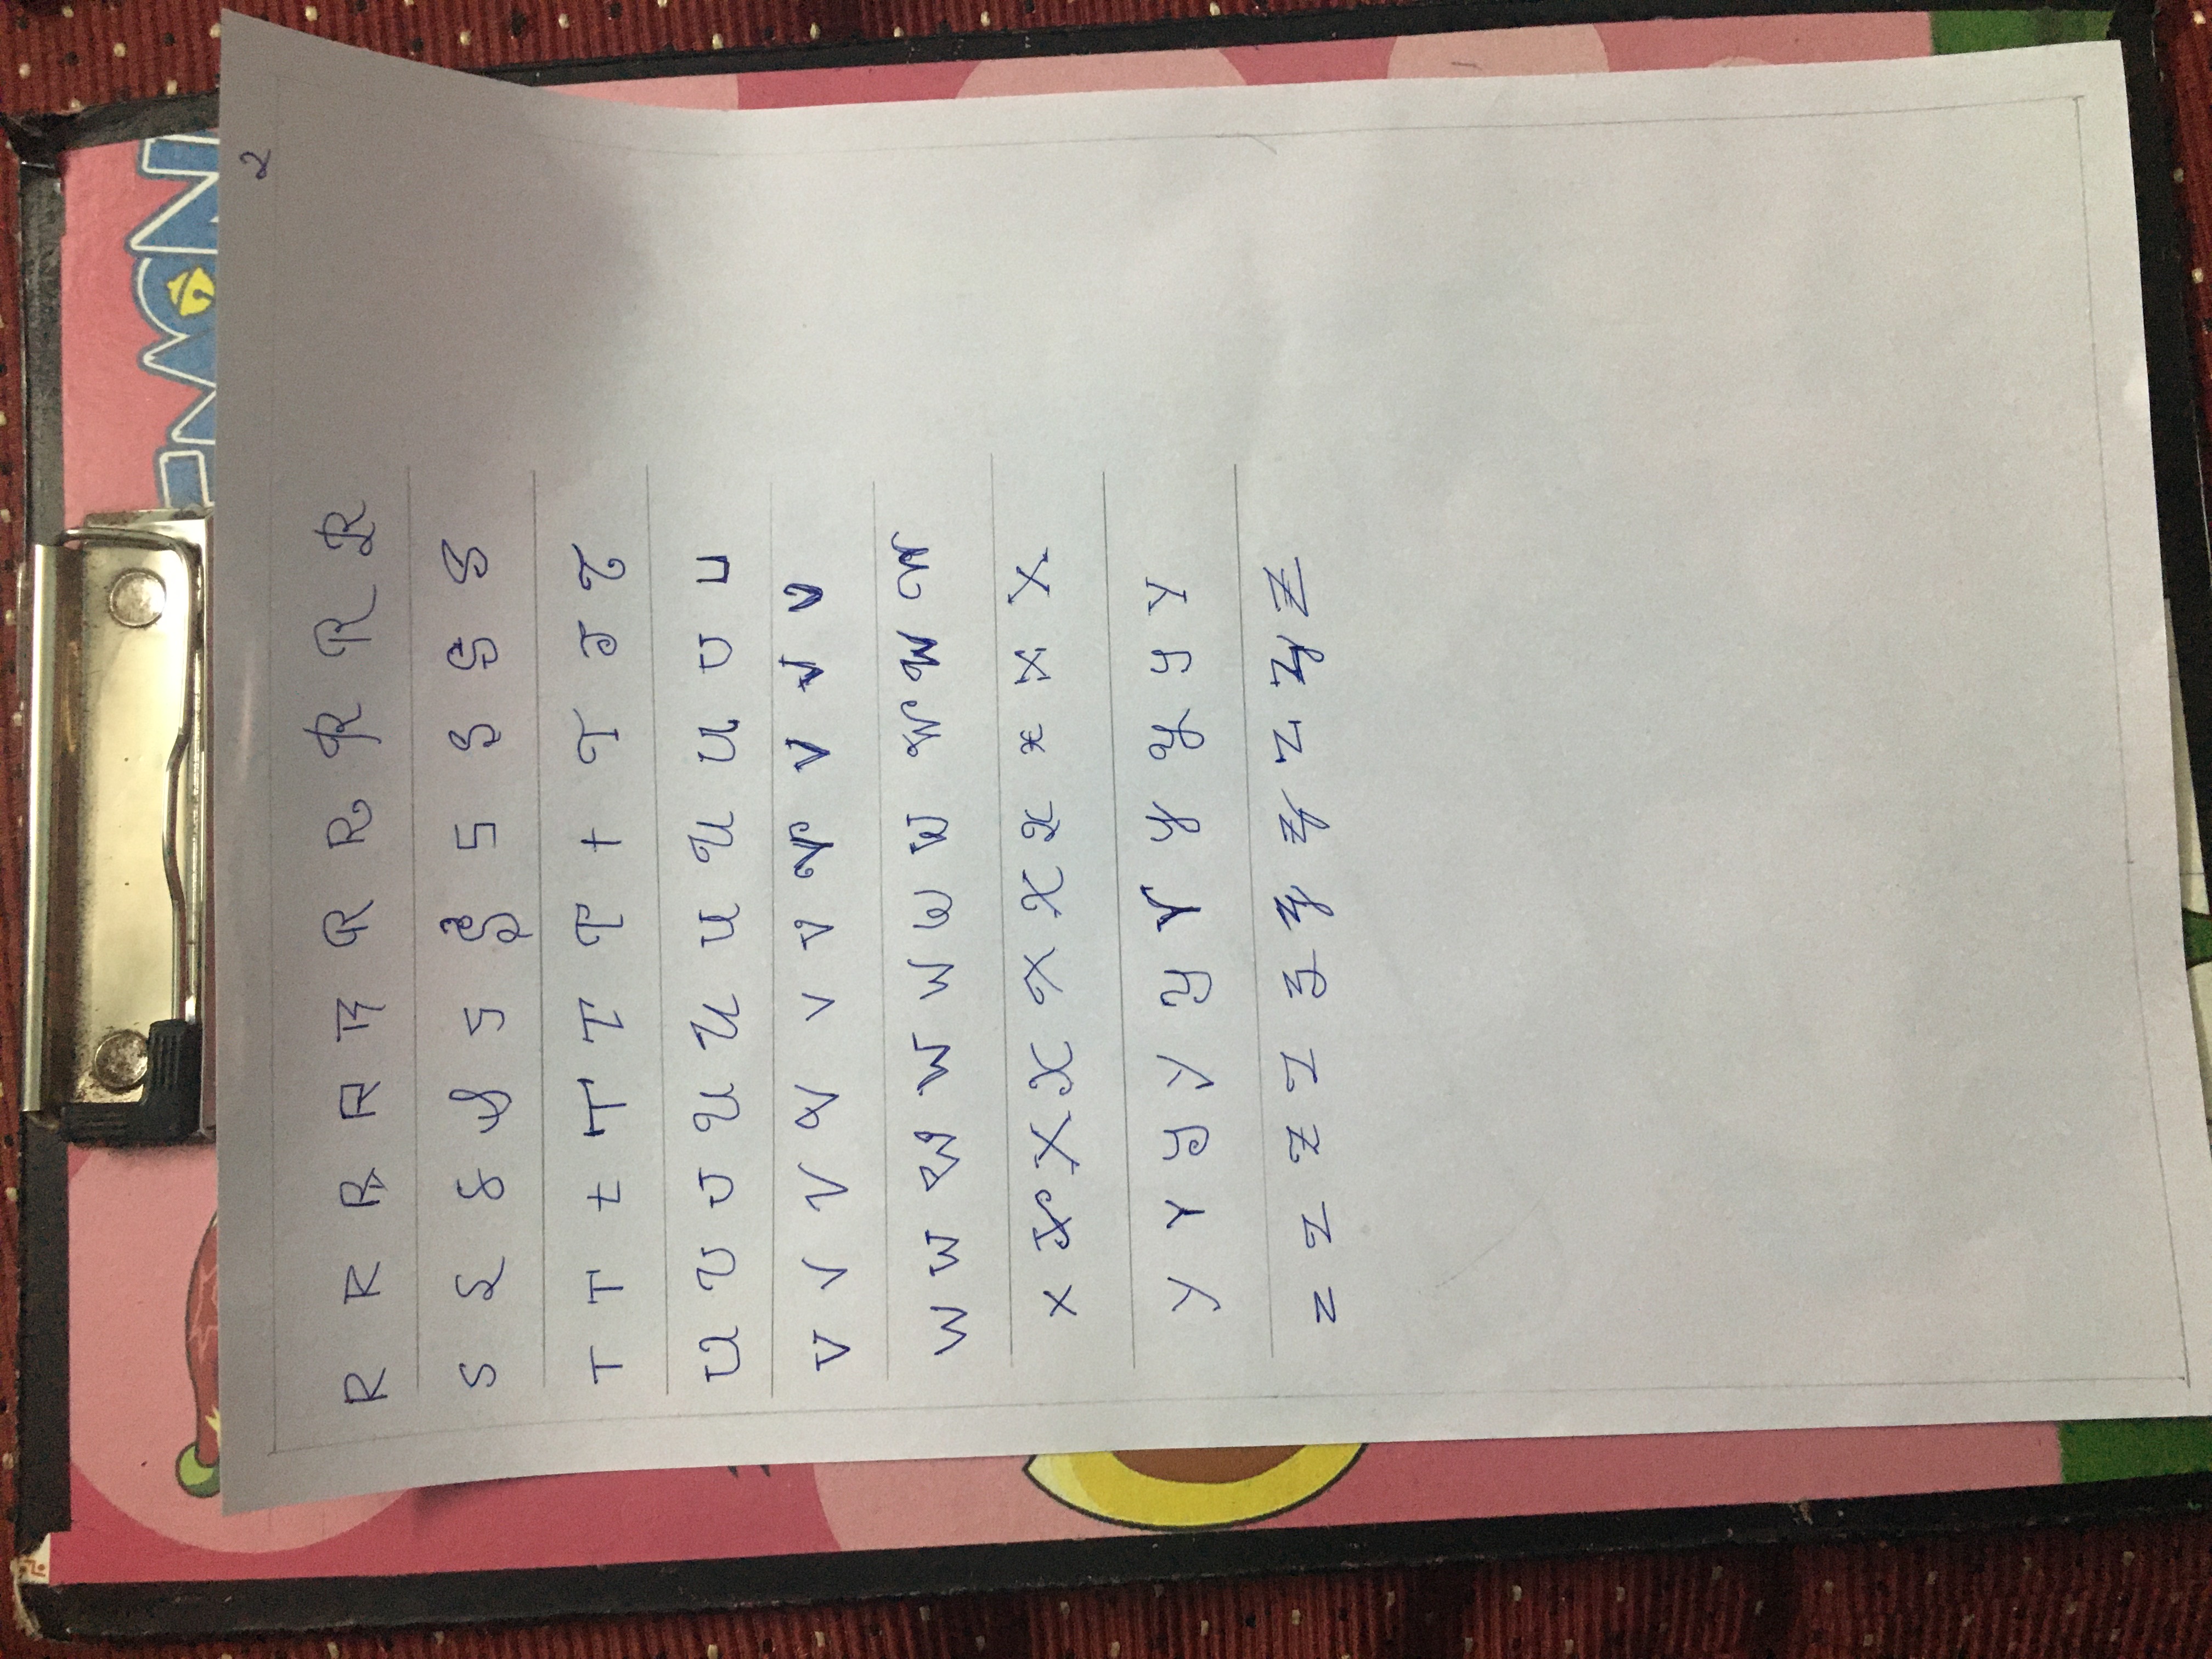 EMON
2
R R R R R R R R R R
S S S S S S S S S S
T T t T T T t T T T
U U U U U U U U U U
V V V V V V V V V V
W W W W W W W W W W
X X X X X X X X X X
Y Y Y Y Y Y Y Y Y Y
Z Z Z Z Z Z Z Z Z Z